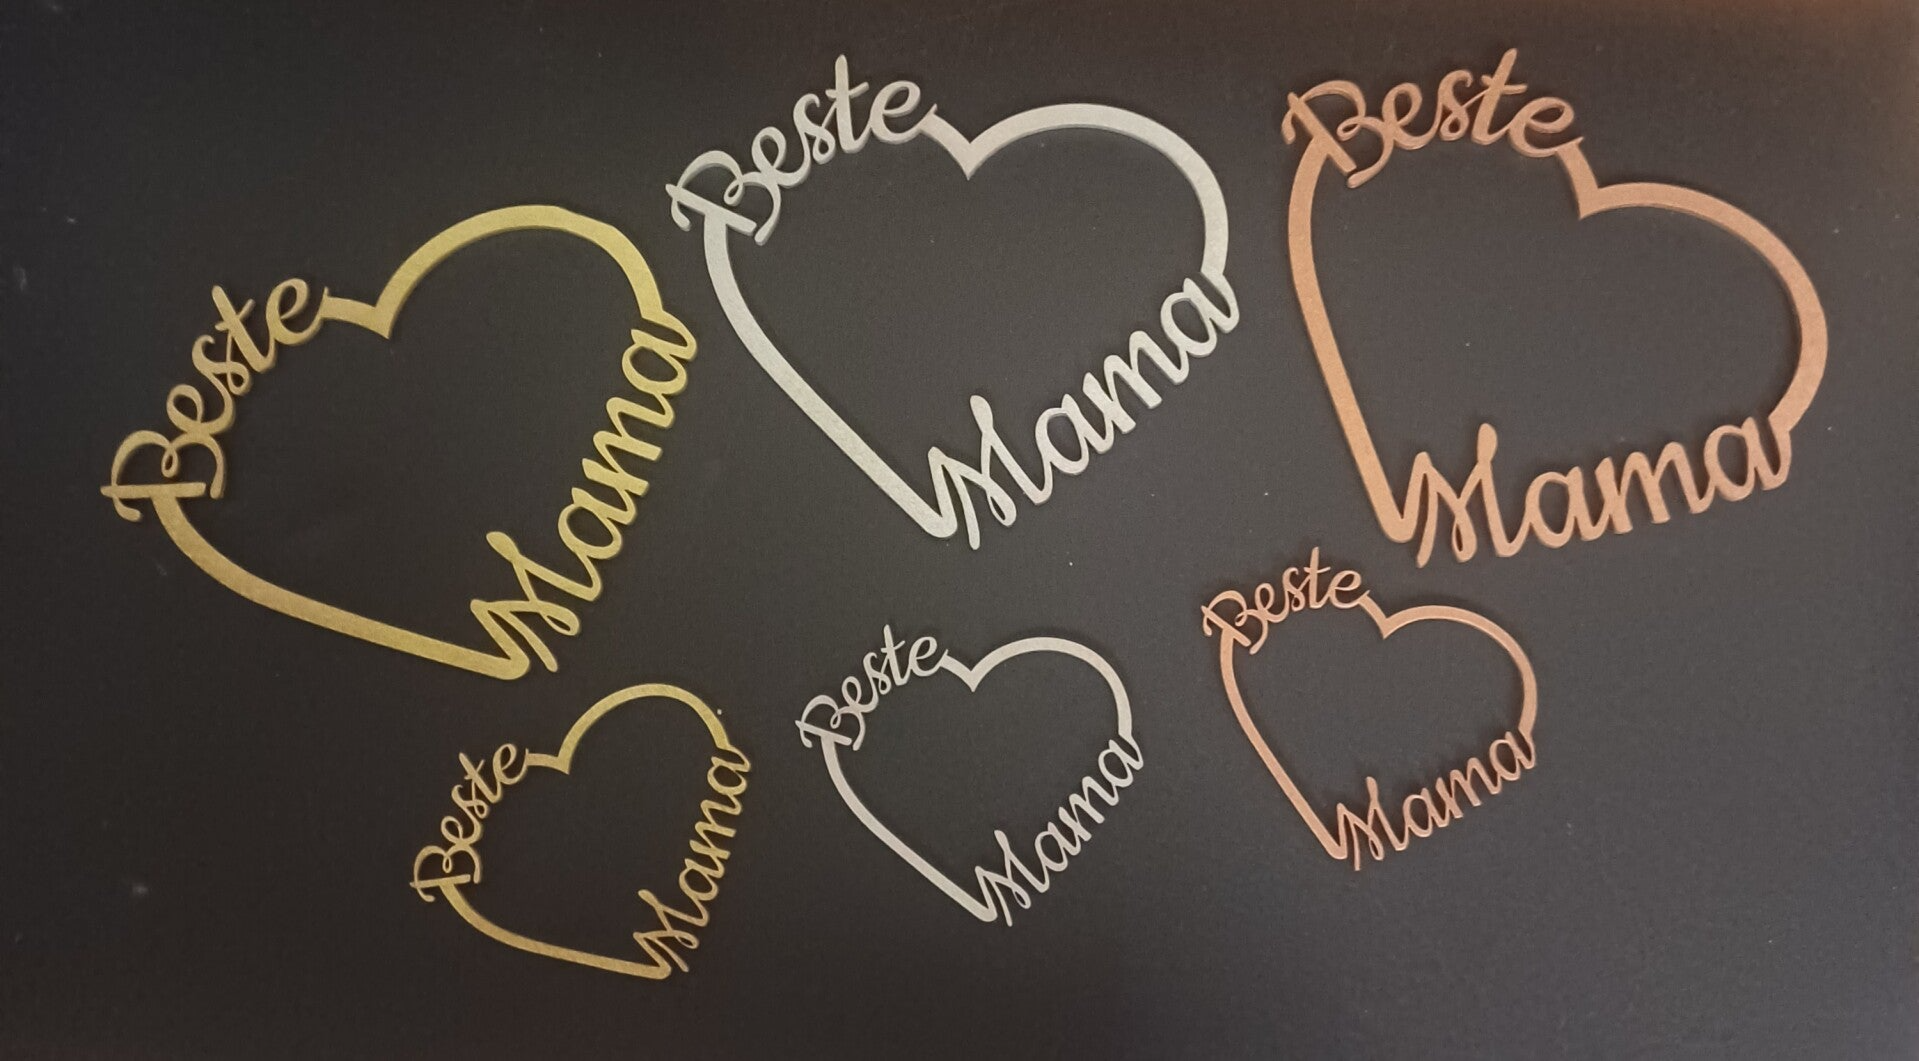 Beste
Mama
Beste
Mama
Beste
Mama
Beste
Mama
Beste
Mama
Beste
Mama